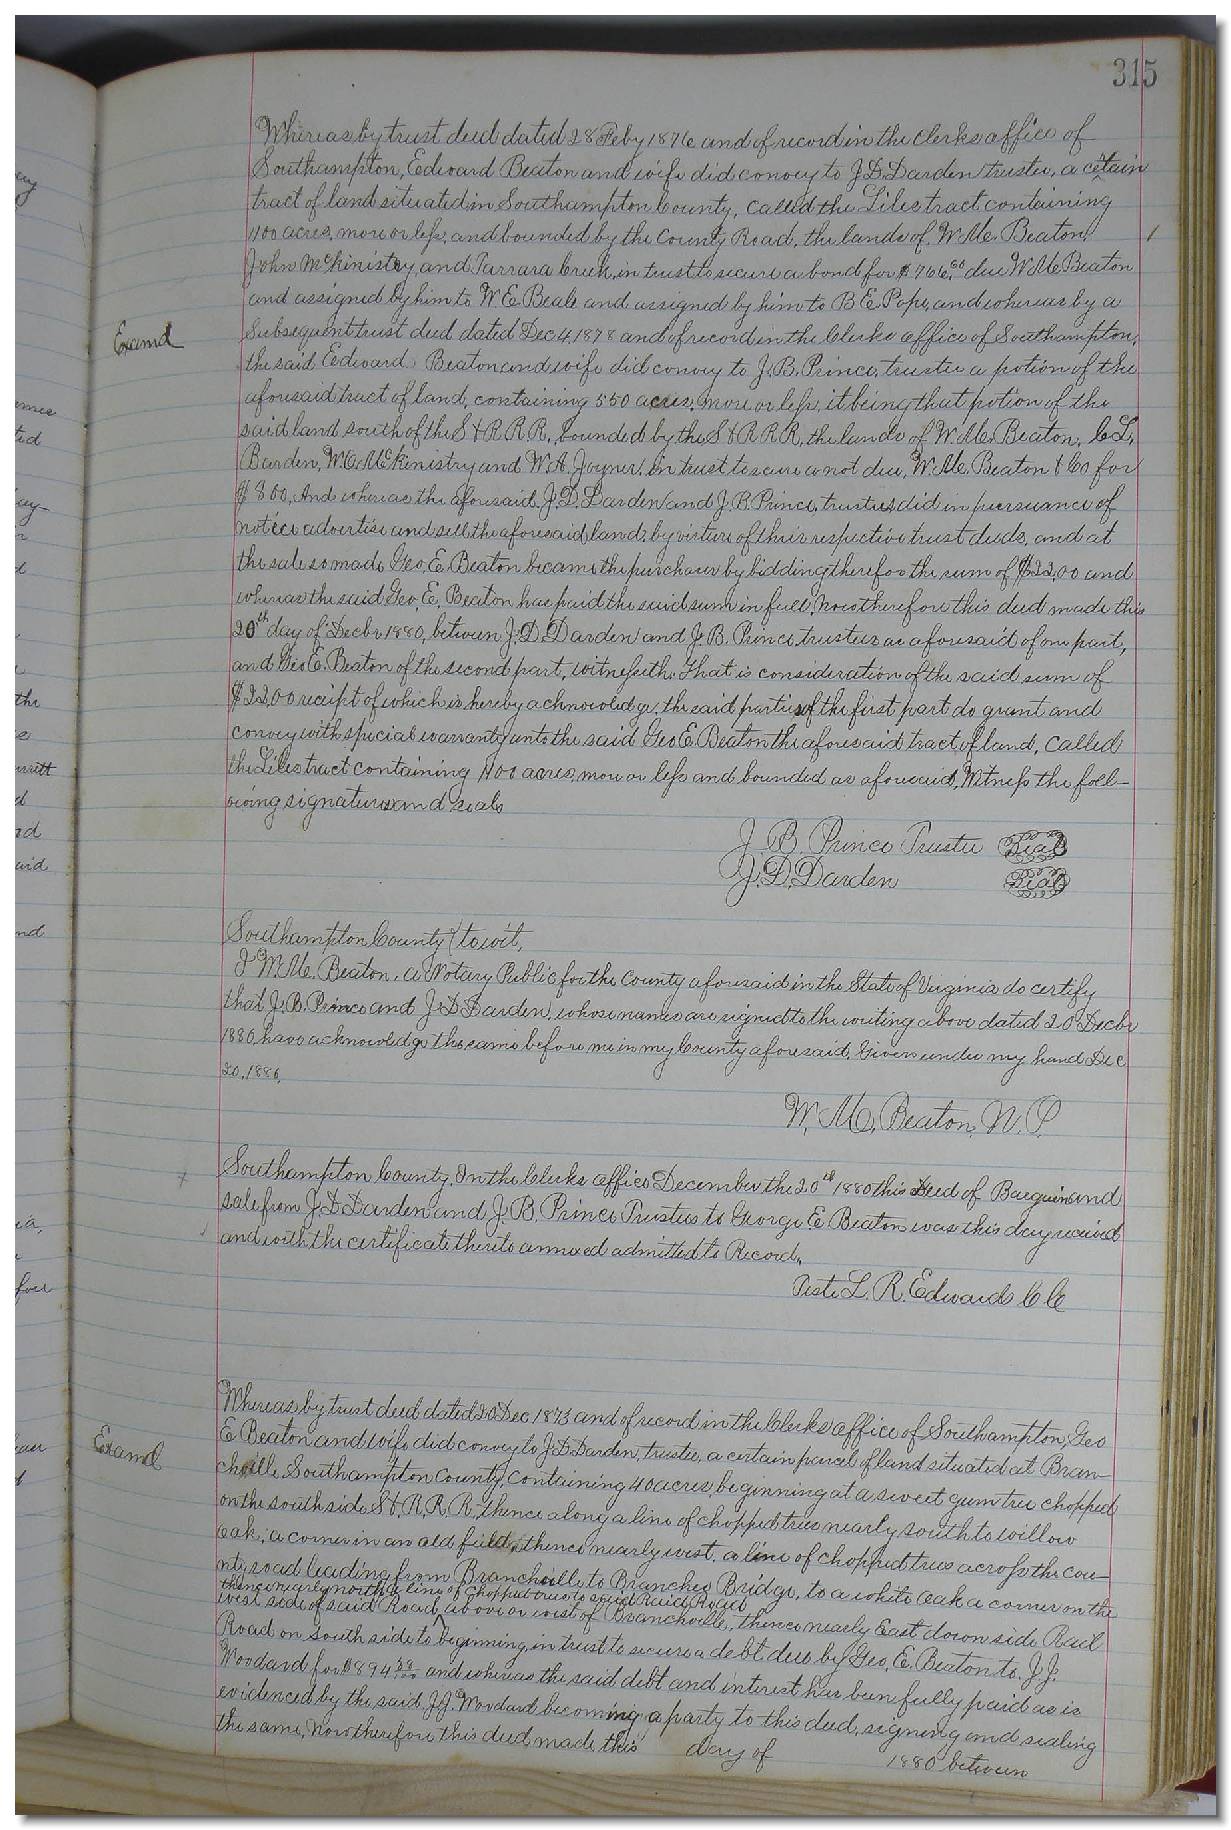 315
Whereas by trust deed dated 28 Feby 1876 and of record in the Clerks office of
Southampton, Edward Beaton and wife did convey to J.D. Darden trustee, a certain
tract of land situated in Southampton County, called the Liles tract containing
1100 acres, more or less, and bounded by the County Road, the lands of W.M. Beaton
John McKinistry, and Tarrara Creek, in trust to secure a bond for $766. due W.M. Beaton
and assigned by him to W.E. Beale and assigned by him to B E Pope, and whereas by a
Subsequent trust deed dated Dec 4, 1878 and of record in the Clerks office of Southampton,
Examd
the said Edward Beaton and wife did convey to J.B. Prince, trustee a potion of the
aforesaid tract of land, containing 550 acres, more or less, it being that potion of the
said land south of the S & R R R, bounded by the S & R R R, the lands of W.M. Beaton,
W.C. McKinistry and W.A. Joyner, in trust to secure a not due, W.M. Beaton & Co for
$300, And whereas the aforesaid J.D. Darden and J.B. Prince, trustees did in pursuance of
notice advertise and sell the aforesaid land, by virture of their respective trust deeds, and at
the sale so made Geo. E. Beaton became the purchaser by bidding therefor the sum of $2200 and
whereas the said Geo. E. Beaton has paid the said sum in full, Now therefore this deed made this
20th day of Decbr 1880, between J.D. Darden and J.B. Prince trustees as aforesaid of one part,
and Geo E. Beaton of the second part, witnesseth: That is consideration of the said sum of
$2200 receipt of which is hereby acknowledge, the said parties of the first part do grant and
convey with special warranty unto the said Geo E. Beaton the aforesaid tract of land, called
the Liles tract containing 1100 acres, more or less and bounded as aforesaid, Witness the foll-
owing signatures and seals
J. B. Prince Trustee Seal
J. D. Darden Seal
Southampton County to wit,
I W.M. Beaton, a Notary Public for the County aforesaid in the State of Virginia do certify
that J.B. Prince and J.D. Darden, whose names are signed to the writing above dated 20 Decbr
1880, have acknowledge the same before me in my County aforesaid, Given under my hand Dec
20, 1880,
W. M. Beaton, N. P.
Southampton County, In the Clerks office December the 20th 1880 this Deed of Barguin and
sale from J.D. Darden and J.B. Prince Trustees to George E. Beaton was this day received
and with the certificate thereto annexed admitted to Record,
Teste L. R. Edwards C C
Whereas by trust deed dated 20 Dec. 1873 and of record in the Clerks office of Southampton, Geo
E Beaton and wife did convey to J.D. Darden, trustee, a certain parcel of land situated at Bran-
Examd
chville Southampton County, containing 40 acres, beginning at a sweet gum tree chopped
on the south side S. & R. R. R. thence along a line of chopped trees nearly south to willow
oak, a corner in an old field, thence nearly west, a line of chopped trees across the cou-
nty road leading from Branchville to Branches Bridge, to a white oak a corner on the
thence nearly north a line of chopped trees to said Raid Road
west side of said Road, above or west of Branchville, thence nearly East down side Rail
Road on south side to beginning, in trust to secure a debt due by Geo. E. Beaton to J.J.
Woodard for $894 and whereas the said debt and interest has been fully paid as is
evidenced by the said J.J. Woodard becoming a party to this deed, signing and sealing
the same, Now therefore this deed, made this day of 1880 between